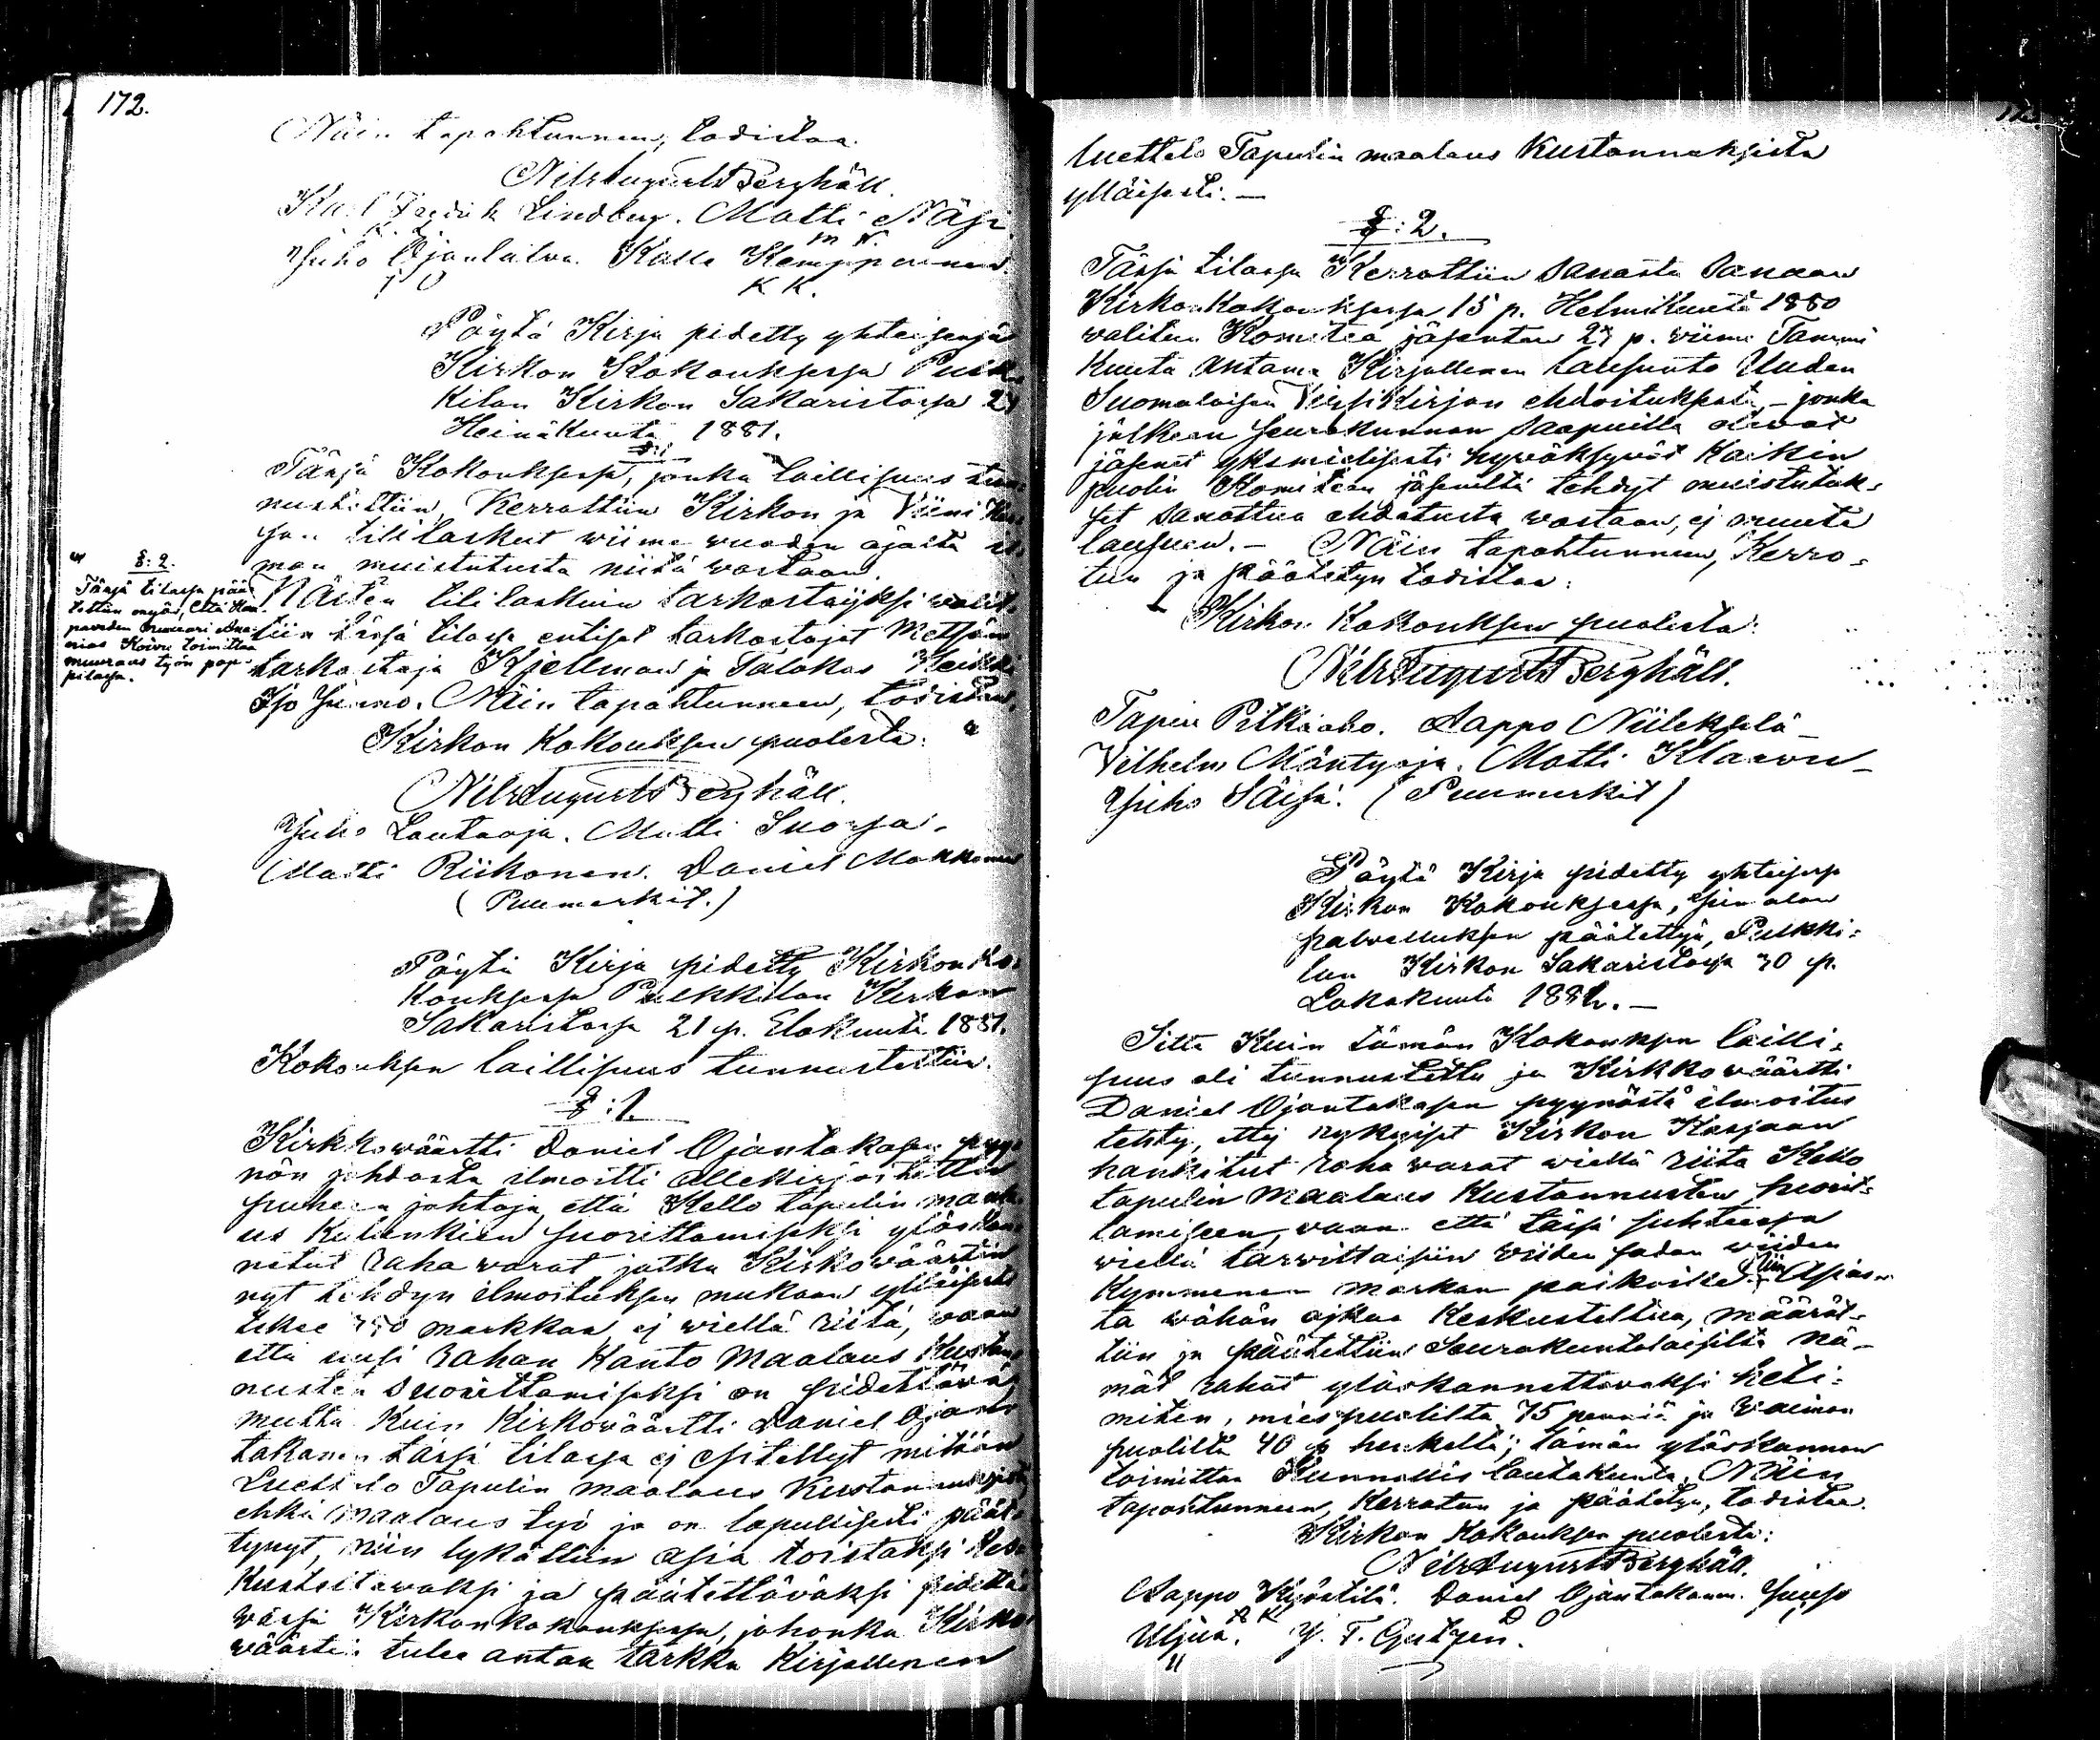 172.
Näin tapahtuneen, todistaa.
Nils August Berghäll.
Karl Fredrik Lindberg. Matti Näsi.
M N.
Juho Ojanlatva. Kalle Kemppainen
J O K K.
Pöytä Kirja pidetty yhteisessä
Kirkon Kokouksessa Pulk-
kilan Kirkon Sakaristossa 24
Heinäkuuta 1881.
§:1.
Tässä Kokouksessa, jonka laillisuus tun-
nustettiin, Kerrottiin Kirkon ja Viini Kas-
san tililaskut wiime wuoden ajasta il-
man muistutusta niitä wastaan.
§:2.
Tässä tilassa pää-
tettiin myös, että
muurari Ana-
nias Koivu toimittaa
muuraus työn pap-
pilassa.
Näiden tililaskuin tarkastajiksi walit-
tiin tässä tilassa entiset tarkastajat Metsän
tarkastaja Kjellman ja Talokas Heikki
Iso Juomo. Näin tapahtunneen, todistaa.
Kirkon Kokouksen puolesta:
Nils August Berghäll.
Juho Lautaoja. Matti Suorsa.
Matti Riikonen. Daniel Makkonen
(Puumerkit.)
Pöytä Kirja pidetty Kirkon Ko-
kouksessa Pulkkilan Kirkon
Sakaristossa 21 p. Elokuuta 1881.
Kokouksen laillisuus tunnustettiin.
§:1.
Kirkkowäärtti Daniel Ojantakasen pyyn-
nön johdosta ilmoitti allekirjoittettu
puheen johtaja, että Kello tapulin maala-
us Kulunkien suorittamiseksi ylöskan-
netut raha warat jotka Kirkowäärtin
nyt tehdyn ilmoituksen mukaan ylläisesti
tekee markkaa, ej wiellä riitä, waan
että uusi rahan kanto Maalaus Kustan-
nusten suorittamiseksi on pidettäwä,
mutta Kuin Kirkowäärtti Daniel Ojan-
takanen tässä tilassa ej esitellyt mitään
Luettelo Tapulin maalaus Kustannuksista
ehkä maalaus työ jo on lopullisesti päät-
tynyt, niin lykättiin asia toistaksi Kes-
kusteltawaksi ja päätettäwäksi pidettä-
wässä Kirkonkokouksessa, johonka Kirko-
wäärtti tulee antaa tarkka Kirjallinen
luettelo Tapulin maalaus Kustannuksista
ylläisesti. —
§:2.
Tässä tilassa Kerrottiin sanasta sanaan
Kirkon Kokouksessa 15 p. Helmikuuta 1880
walitun Komitea jäsenten 27 p. wiime Tammi
Kuuta antama Kirjallinen lausunto Uuden
Suomalaisen Virsikirjan ehdoituksesta – jonka
jälkeen seurakunnan saapuilla olewat
jäsenet yksmielisesti hywäksywät Kaikin
puolin Komitean jäseniltä tehdyt muistutuk-
set sanottua ehdotusta wastaan, ej muuta
lausuen. – Näin tapahtunneen, Kerro-
tun ja päätetyn todistaa:
Kirkon Kokouksen puolesta:
Nils August Berghäll.
Tapio Pitkäaho. Aappo Niileksela
Vilhelm Mäntyoja. Matti Klaavu
Juho Säisä. (Puumerkit)
Pöytä Kirja pidetty yhteisessä
Kirkon Kokouksessa, Jumalan
palweluksen päätettyä, Pulkki-
lan Kirkon Sakaristossa 30 p.
Lokakuuta 1881. —
Sitte Kuin tämän Kokouksen lailli-
suus oli tunnustettu ja Kirkkowäärtti
Daniel Ojantakasen pyynöstä ilmoitus
tehty, ettej nykyiset Kirkon Kassaan
hankitut raha warat wiellä riitä Kello
tapulin Maalaus Kustannusten suorit-
tamiseen, waan että tässä suhteessa
wiellä tarwittaisiin wiiden sadan wiiden
Kymmenen markan paikoille, niin Asias-
ta wähän ajkaa Keskusteltua, määrät-
tiin ja päätettiin Seurakuntalaisilta nä-
mät rahat ylöskannettawaksi heti-
miten, miespuolilta 75 penniä ja waimon
puolilta 40 p hengeltä; tämän ylöskannon
toimittaa Kunnallis lautakunta. Näin
tapahtunneen, Kerrotun ja päätetyn, todistaa.
Kirkon Kokouksen puolesta:
Nils August Berghäll.
Aappo Kyöstilä. Daniel Ojantakanen. Juuso
A K D O
Uljua. J. F.
U